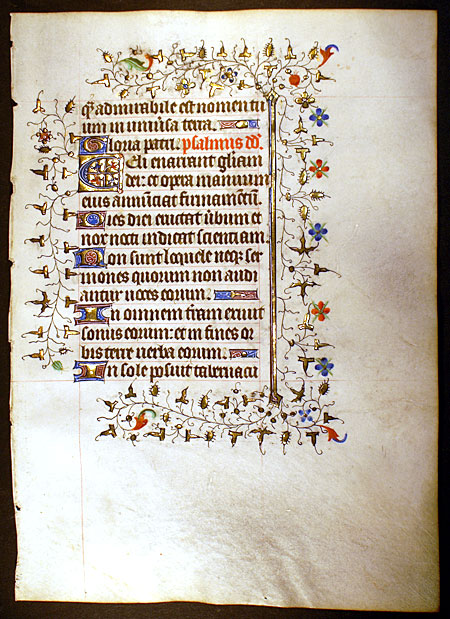 qȝ admirabile est nomen tu
um in uniūsa terra.
Gloria patri. psalmus dd̄.
Celi enarrant gl̄iam
dei: et opera manuum
eius annūciat firmamētū.
Dies diei eructat ūbum et
nox nocti indicat scientiam.
Non sunt loquele neqȝ ser
mones quorum non audi
antur uoces eorum.
In omnem t̄ram exiuit
sonus eorum: et in fines or
bis terre uerba eorum.
In sole posuit tabernacu